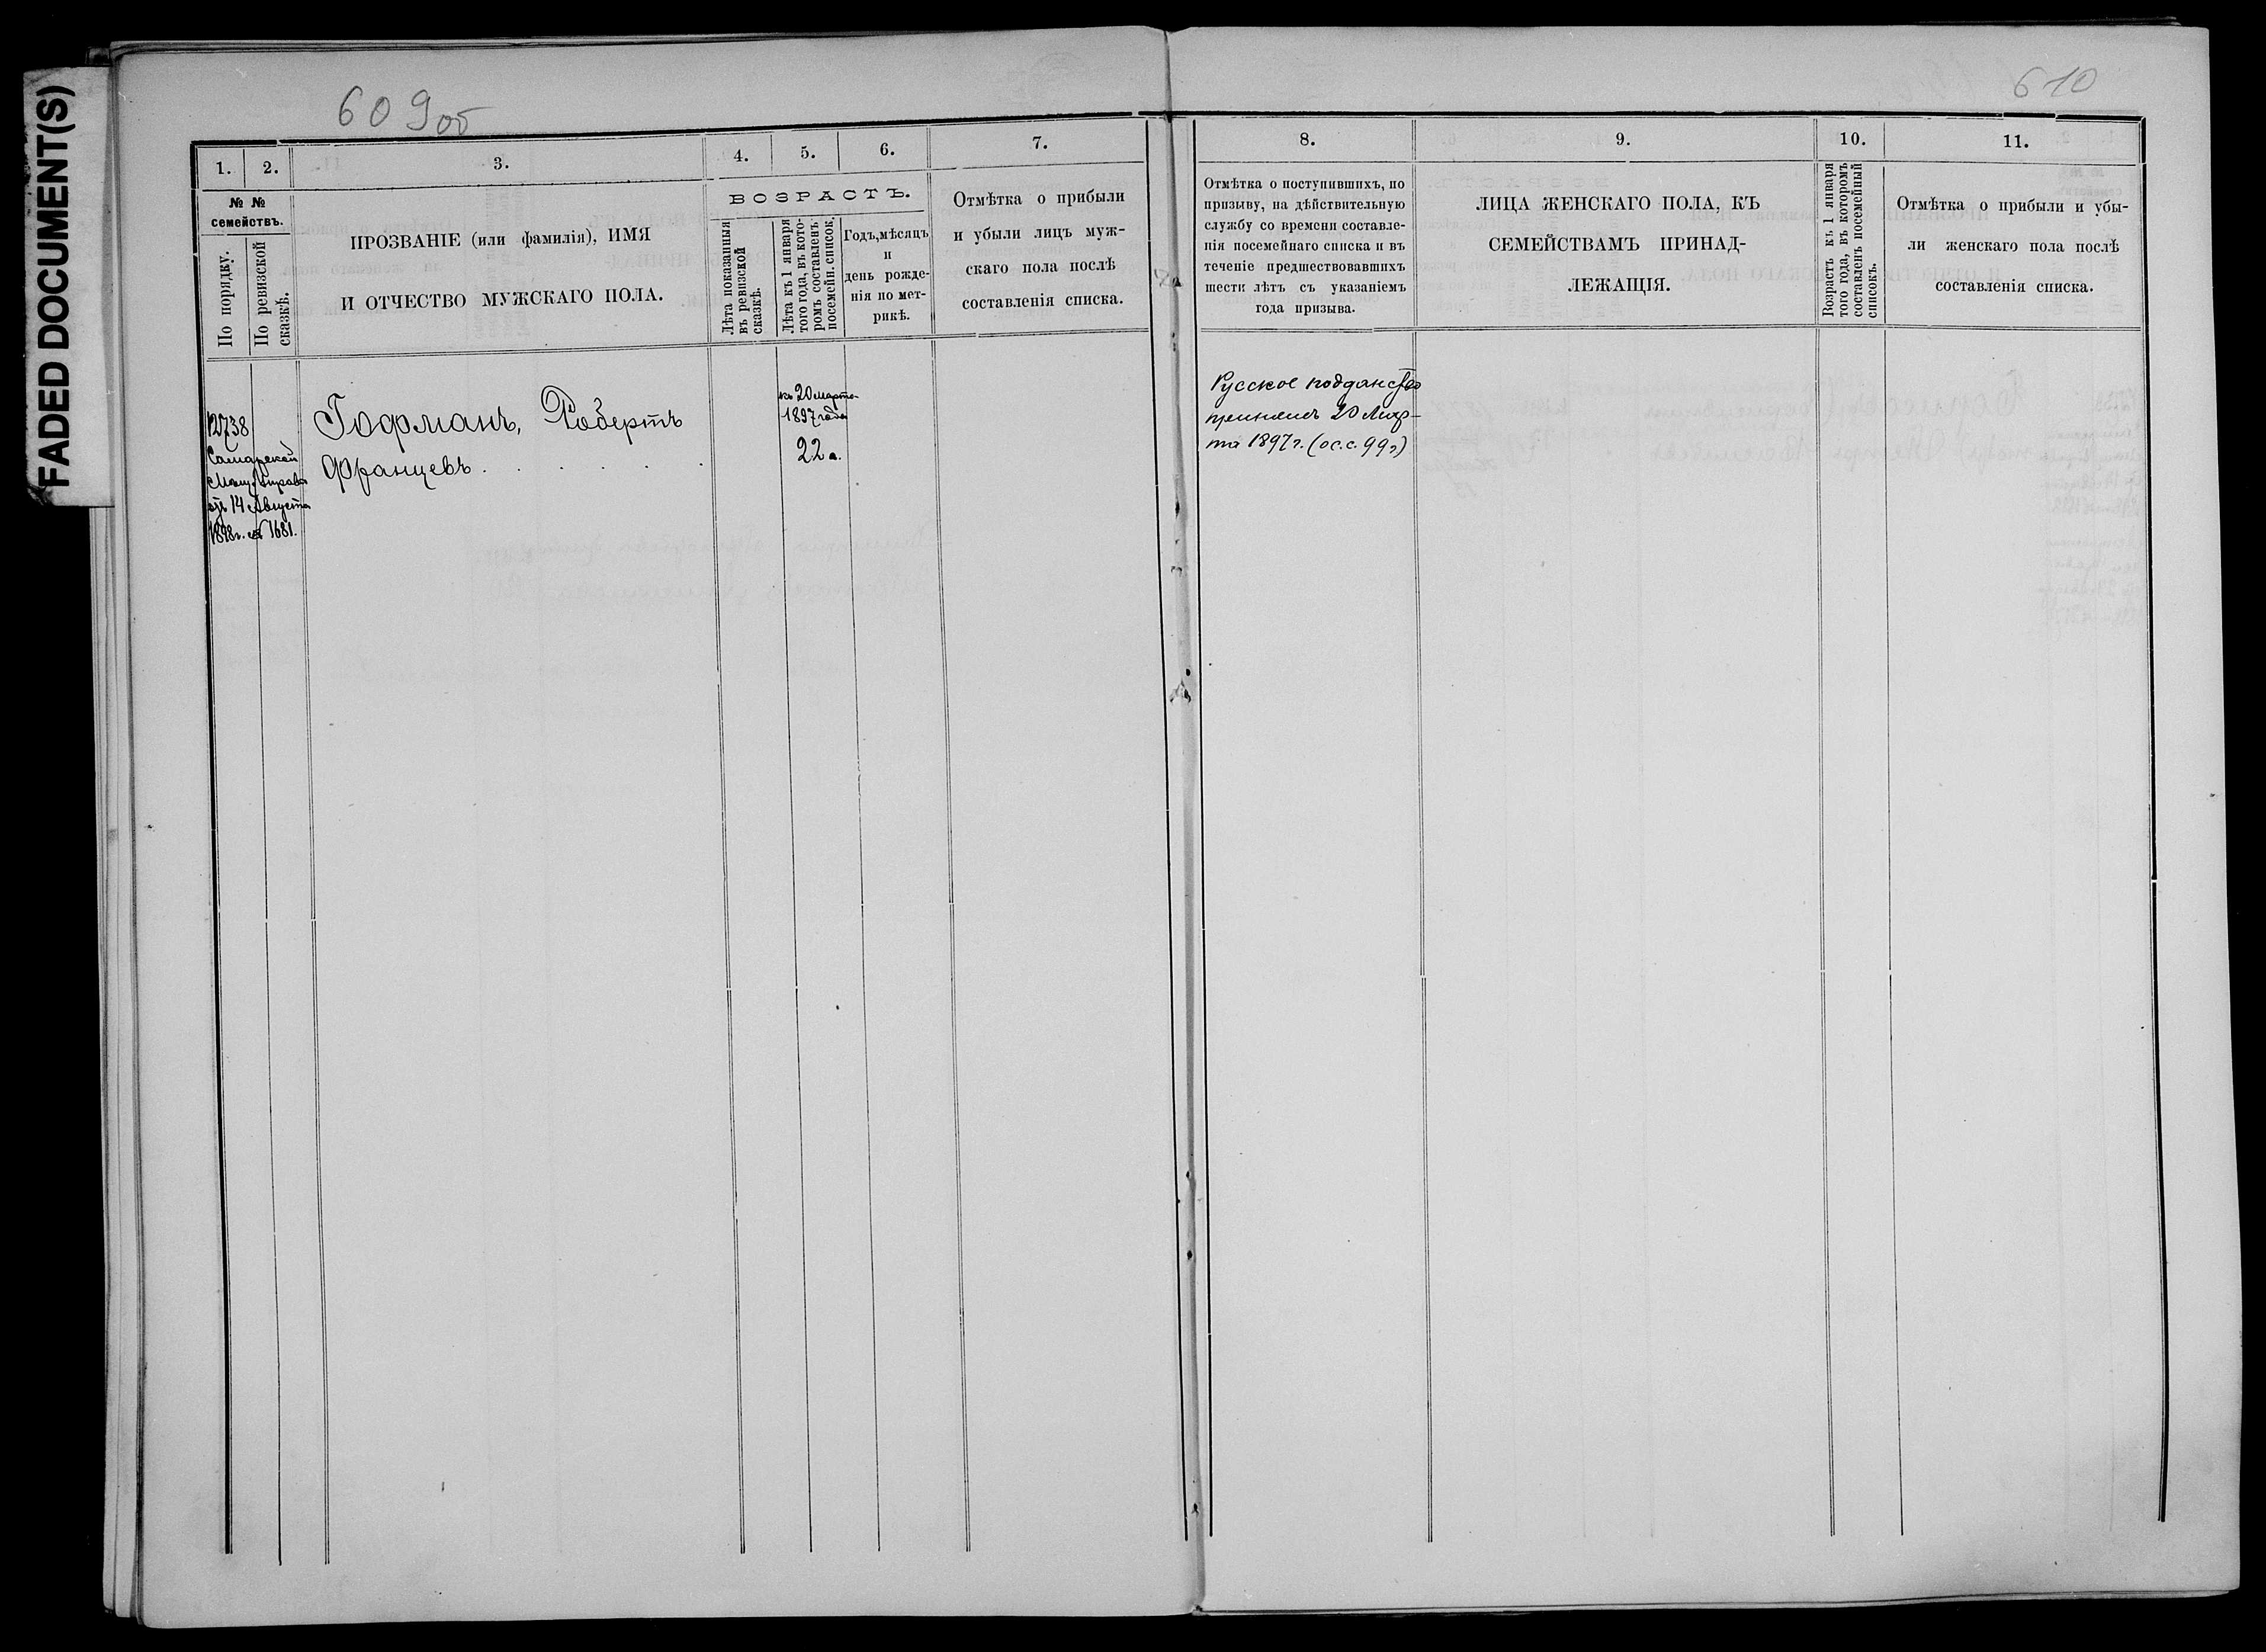 FADED DOCUMENT(S)
609об
1.
2.
3.
4.
5.
6.
7.
№ №
семействъ.
По порядку.
По ревизской
сказкѣ.
ПРОЗВАНІЕ (или фамилія), ИМЯ
И ОТЧЕСТВО МУЖСКАГО ПОЛА.
ВОЗРАСТЪ.
Лѣта показанныя
въ ревизской
сказкѣ.
Лѣта къ 1 января
того года, въ кото-
ромъ составленъ
посемейн. список.
Годъ, мѣсяцъ
и
день рожде-
нія по мет-
рикѣ.
Отмѣтка о прибыли
и убыли лицъ муж-
скаго пола послѣ
составленія списка.
12738
Самарской
от 14 Августа
1898г. № 1681.
Гофманъ, Робертъ
Францевъ . . . . .
къ 20 марта
1897 года
22 л.
610
8.
9.
10.
11.
Отмѣтка о поступившихъ, по
призыву, на дѣйствительную
службу со времени составле-
нія посемейнаго списка и въ
теченіе предшествовавшихъ
шести лѣтъ съ указаніемъ
года призыва.
ЛИЦА ЖЕНСКАГО ПОЛА, КЪ
СЕМЕЙСТВАМЪ ПРИНАД-
ЛЕЖАЩІЯ.
Возрастъ къ 1 января
того года, въ которомъ
составленъ посемейный
списокъ.
Отмѣтка о прибыли и убы-
ли женскаго пола послѣ
составленія списка.
Русское подданство
принялъ 20 Мар-
та 1897 г. (ос. с. 99 г)